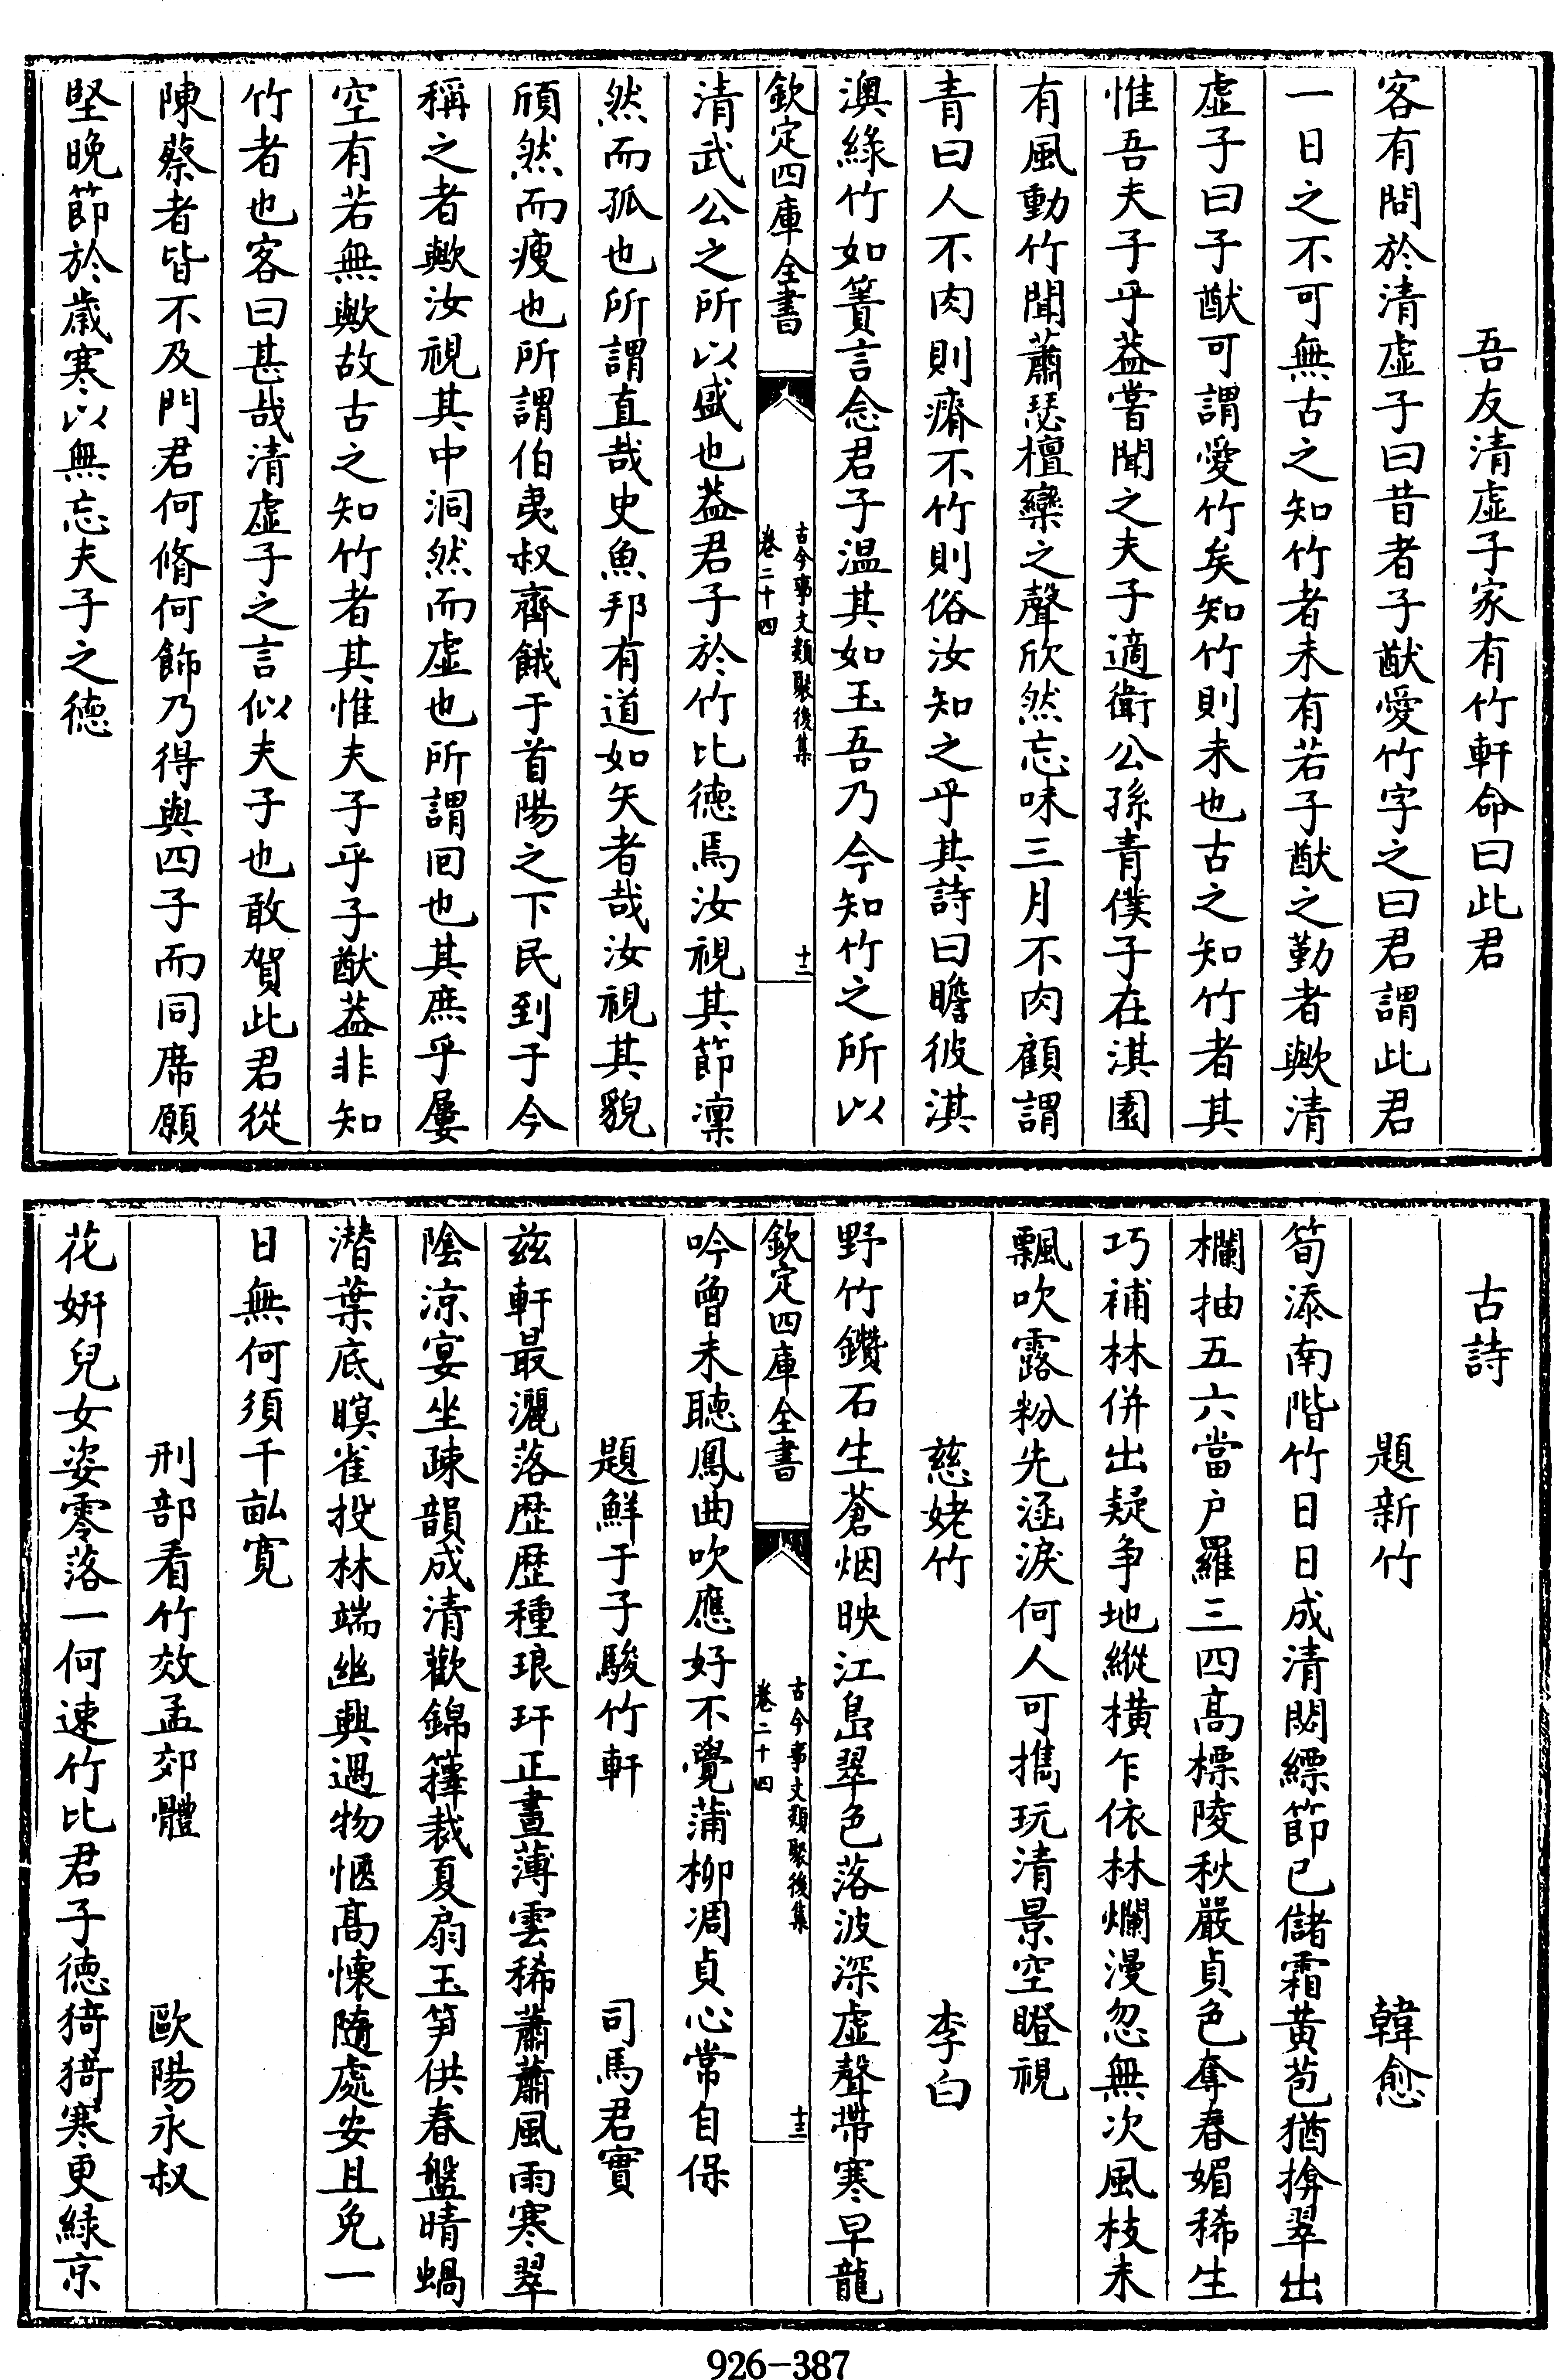 吾友清虛子家有竹軒命曰此君
客有問於清虛子曰昔者子猷愛竹字之曰君謂此君
一日之不可無古之知竹者未有若子猷之勤者歟清
虛子曰子猷可謂愛竹矣知竹則未也古之知竹者其
惟吾夫子乎葢嘗聞之夫子適衛公孫青僕子在淇園
有風動竹聞蕭瑟檀欒之聲欣然忘味三月不肉顧謂
青曰人不肉則瘠不竹則俗汝知之乎其詩曰瞻彼淇
澳綠竹如簀言念君子溫其如玉吾乃今知竹之所以
欽定四庫全書
古今事文類聚後集
卷二十四
十二
清武公之所以盛也葢君子於竹比德焉汝視其節凜
然而孤也所謂直哉史魚邦有道如矢者哉汝視其貌
頎然而瘦也所謂伯夷叔齊餓于首陽之下民到于今
稱之者歟汝視其中洞然而虛也所謂回也其庶乎屢
空有若無歟故古之知竹者其惟夫子乎子猷葢非知
竹者也客曰甚哉清虛子之言似夫子也敢賀此君從
陳蔡者皆不及門君何脩何飾乃得與四子而同席願
堅晚節於歲寒以無忘夫子之德
古詩
題新竹 韓愈
筍添南階竹日日成清閟縹節已儲霜黃苞猶揜翠出
欄抽五六當户羅三四高標陵秋嚴貞色奪春媚稀生
巧補林併出疑爭地縱橫乍依林爛漫忽無次風枝未
飄吹露粉先涵淚何人可擕玩清景空瞪視
慈姥竹 李白
野竹鑽石生蒼烟映江島翠色落波深虛聲帶寒早龍
欽定四庫全書
古今事文類聚後集
卷二十四
十三
吟曾未聽鳳曲吹應好不覺蒲柳凋貞心常自保
題鮮于子駿竹軒 司馬君實
兹軒最灑落歴歴種琅玕正晝薄雲稀蕭蕭風雨寒翠
陰涼宴坐疎韻成清歡錦籜裁夏扇玉笋供春盤晴蝸
潛葉底暝雀投林端幽興遇物愜高懷随處安且免一
日無何須千畝寬
刑部看竹效孟郊體 歐陽永叔
花妍兒女姿零落一何速竹比君子德猗猗寒更綠京
926-387